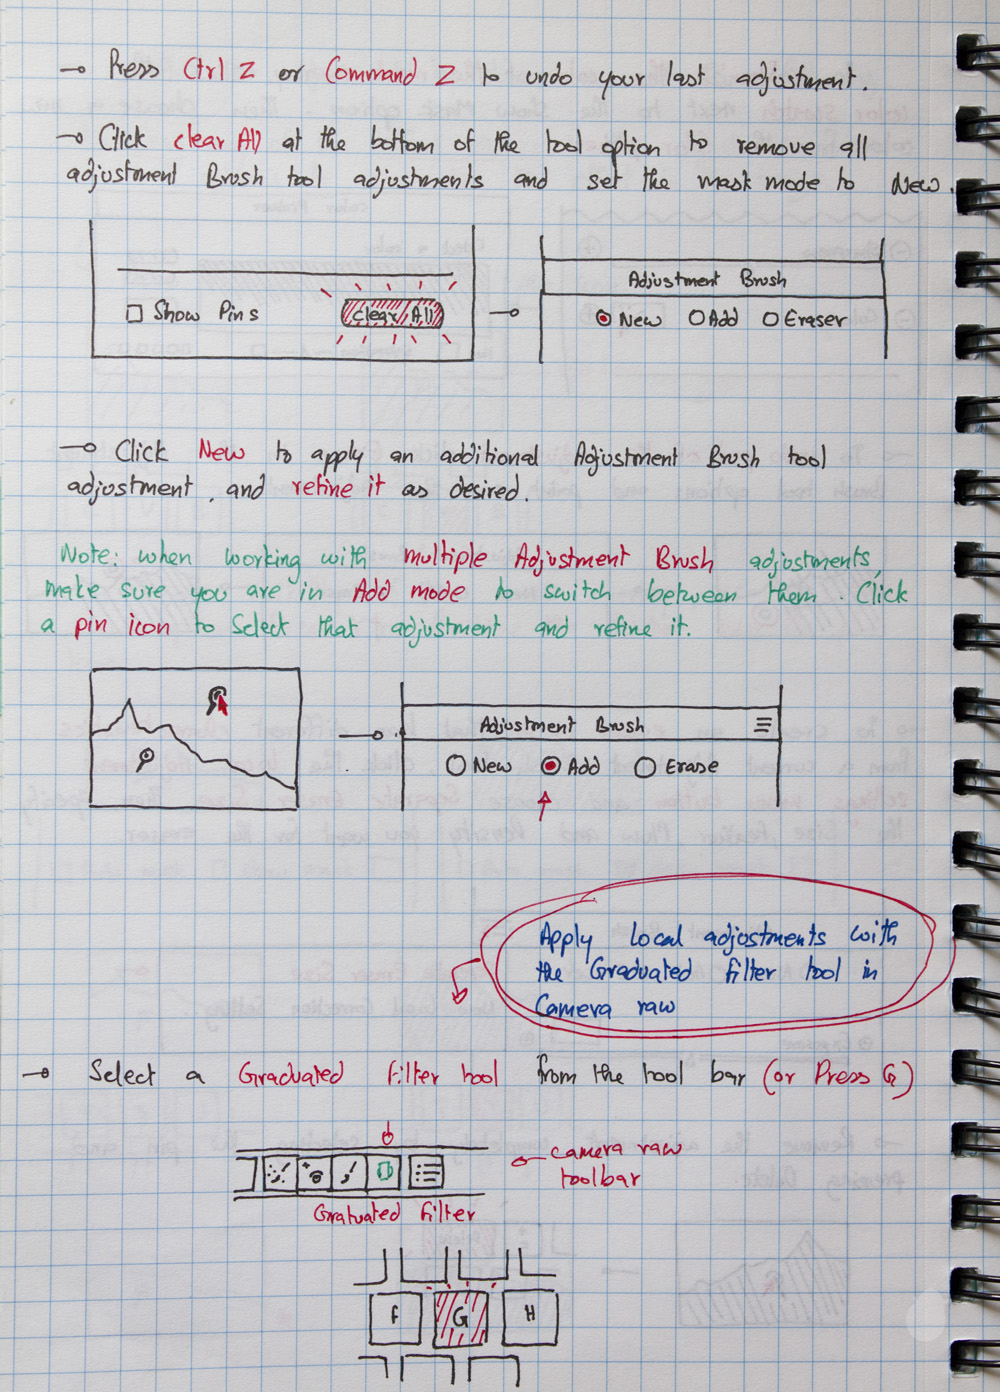 Press Ctrl Z or Command Z to undo your last adjustment.
Click clear All at the bottom of the tool option to remove all
adjustment Brush tool adjustments and set the mask mode to New.
Show Pins
Clear All
Adjustment Brush
New Add Eraser
Click New to apply an additional Adjustment Brush tool
adjustment, and refine it as desired.
Note: when working with multiple Adjustment Brush adjustments,
make sure you are in Add mode to switch between them. Click
a pin icon to Select that adjustment and refine it.
Adjustment Brush
New Add Erase
Apply local adjustments with
the Graduated filter tool in
Camera raw
Select a Graduated filter tool from the tool bar (or Press G)
camera raw
toolbar
Gratuated filter
F G H